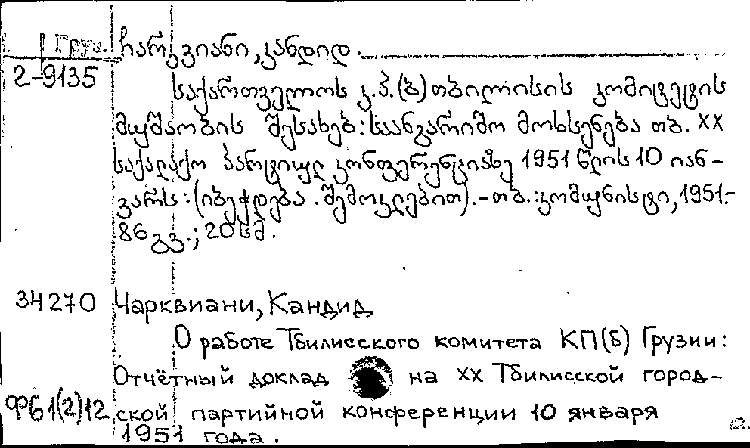 Груз. ჩარკვიანი, კანდიდ.
2-9135
საქართველოს კ.პ.(ბ) თბილისის კომიტეტის
მუშაობის შესახებ: საანგარიშო მოხსენება თბ. XX
საქალაქო პარტიულ კონფერენციაზე 1951 წლის 10 იან-
ვარს: (იბეჭდება შემოკლებით).-თბ.:კომუნისტი, 1951.-
86 გვ.; 20 სმ.
34270 Чарквиани, Кандид
О работе Тбилисского комитета КП(б) Грузии:
Отчётный доклад на XX Тбилисской город-
ФФ61(2)12 ской партийной конференции 10 января
1951 года.